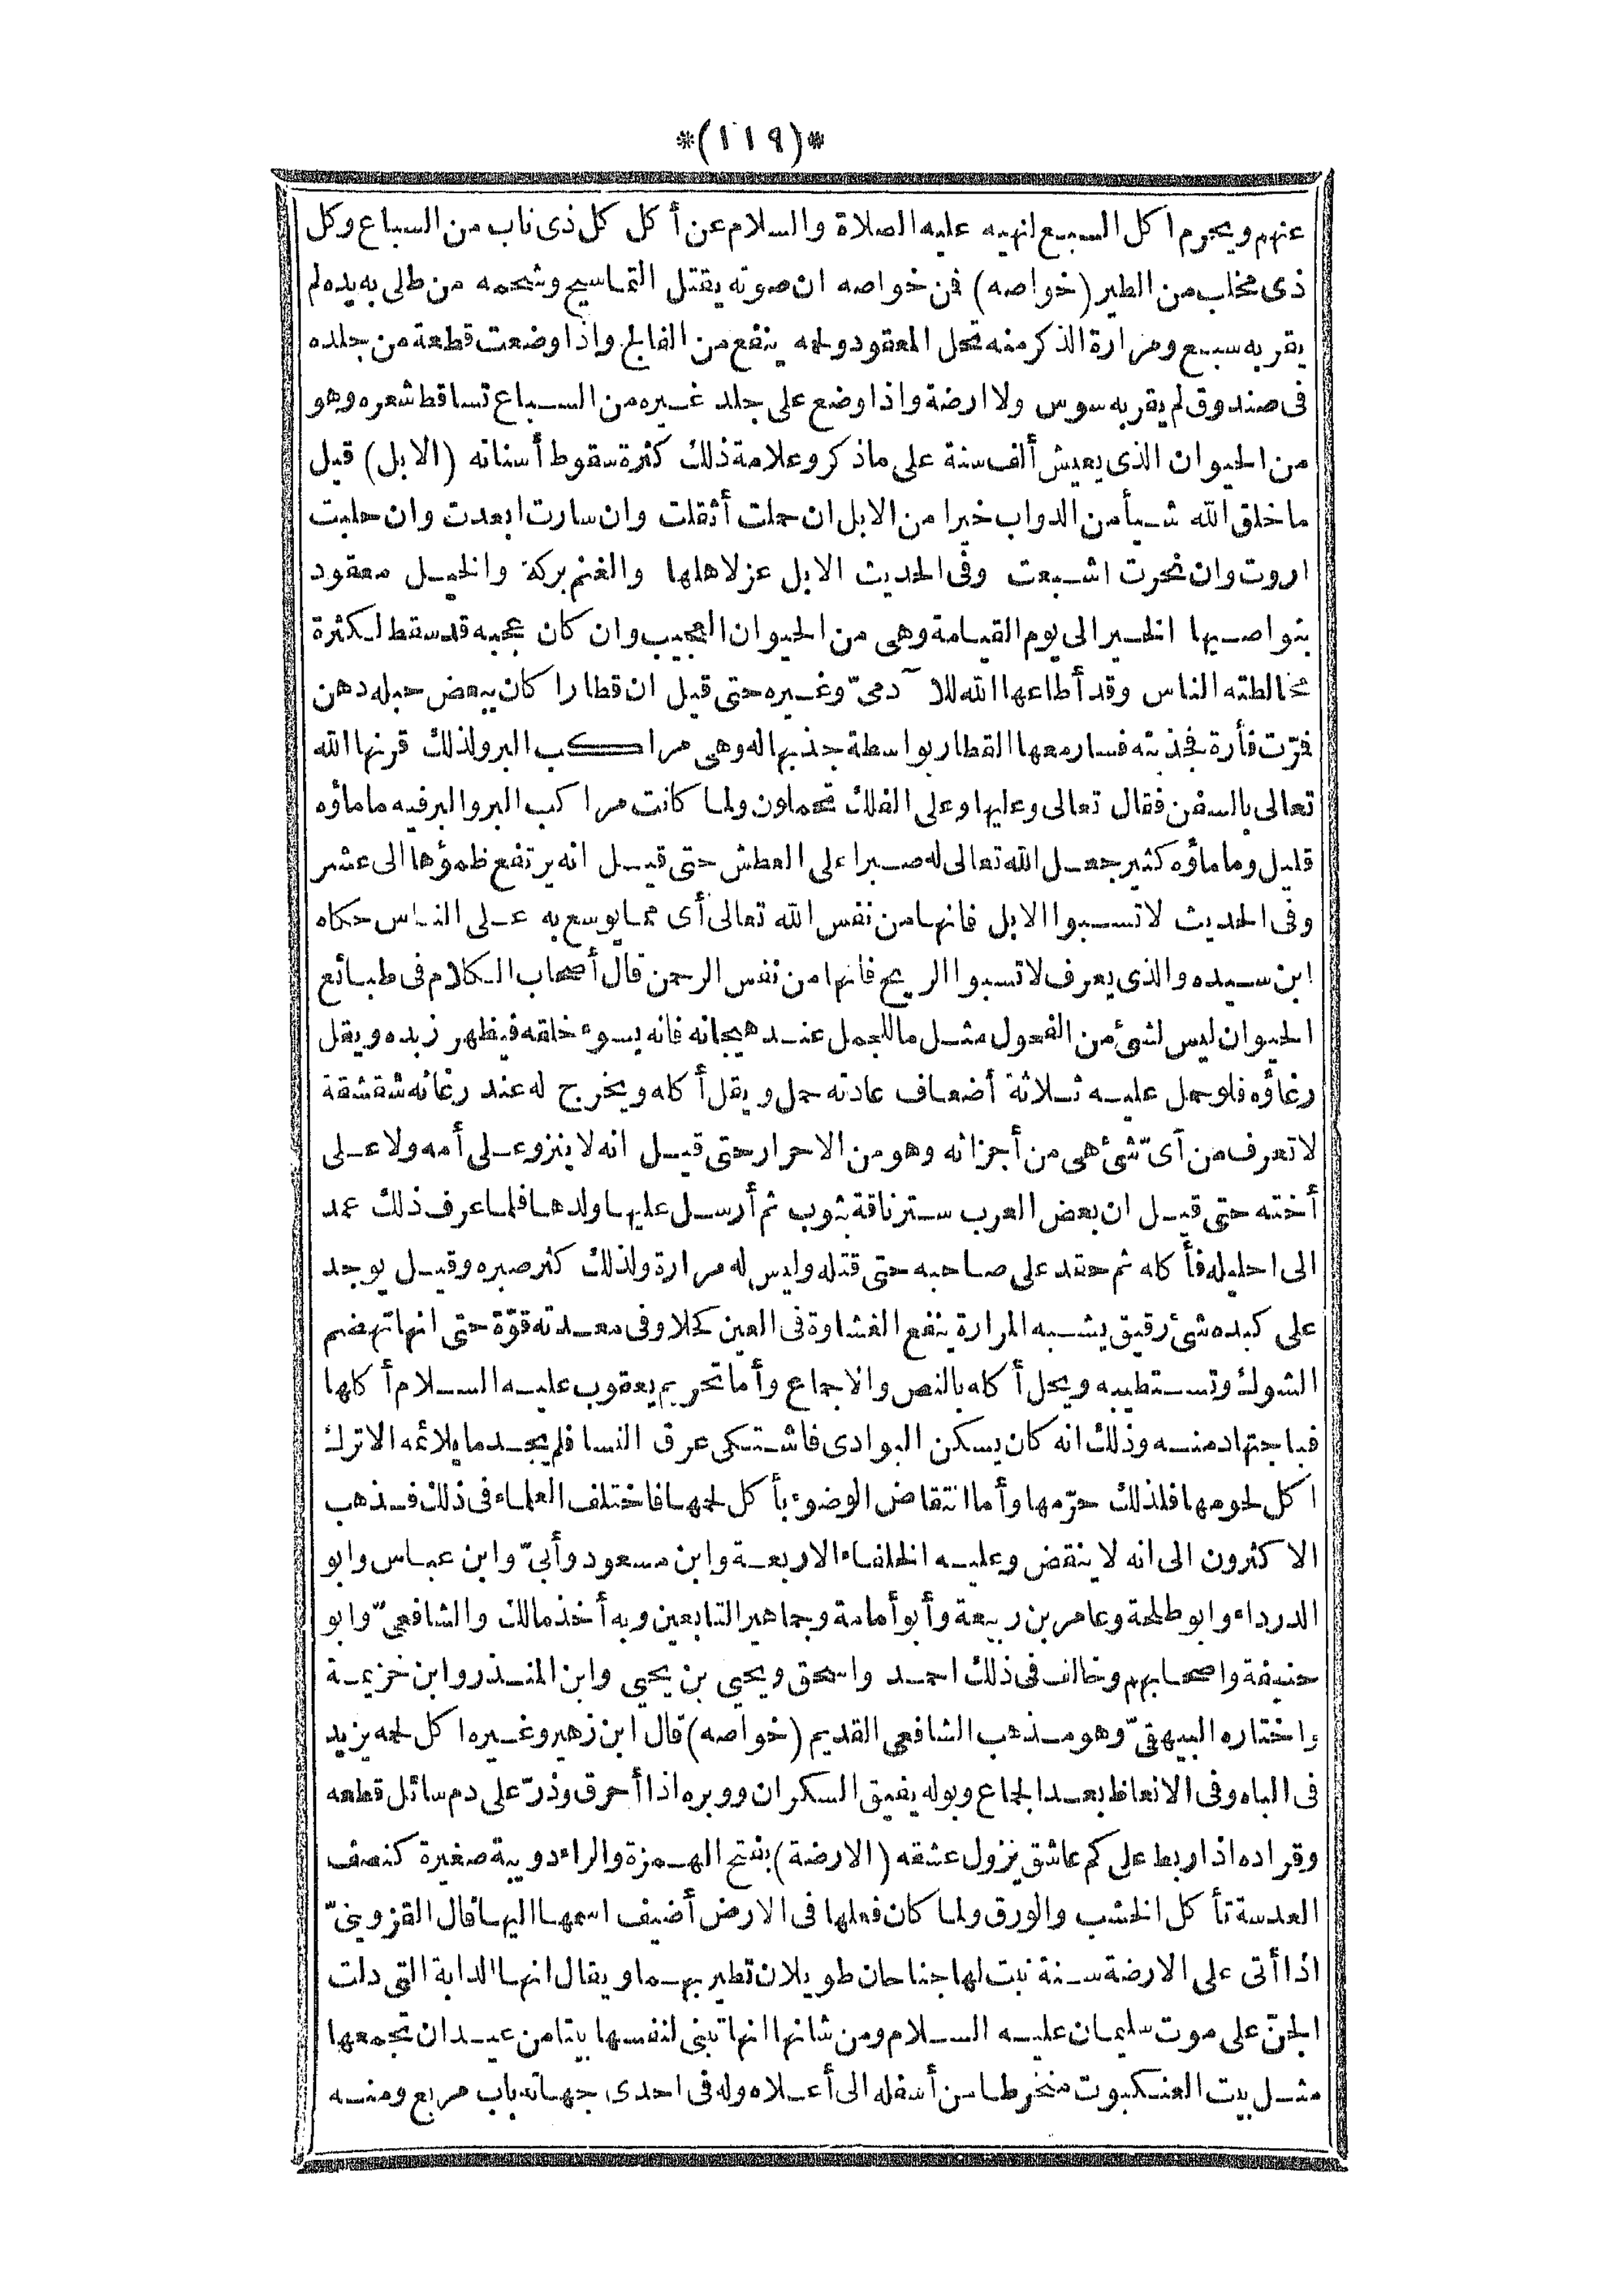 *(١١٩)*
عنهم ويحرم اكل السبع لنهيه عليه الصلاة والسلام عن أكل كل ذى ناب من السباع وكل
ذى مخلب من الطير (خواصه) فمن خواصه ان صوته يقتل التماسيح وشحمه من طلى به يده لم
يقربه سبع ومرارة الذكر منه تحل المعقود ولحمه ينفع من الفالج واذا وضعت قطعة من جلده
فى صندوق لم يقربه سوس ولا ارضة واذا وضع على جلد غيره من السباع تساقط شعره وهو
من الحيوان الذى يعيش ألف سنة على ماذكر وعلامة ذلك كثرة سقوط أسنانه (الابل) قيل
ما خلق الله شيأ من الدواب خيرا من الابل ان حملت أثقلت وان سارت ابعدت وان حلبت
اروت وان نحرت اشبعت وفى الحديث الابل عز لاهلها والغنم بركة والخيل معقود
بنواصيها الخير الى يوم القيامة وهى من الحيوان العجيب وان كان عجبه قد سقط لكثرة
مخالطته الناس وقد أطاعها الله للآدمىّ وغيره حتى قيل ان قطارا كان ببعض حبله دهن
فمرّت فأرة فجذبته فسار معها القطار بواسطة جذبها له وهى مراكب البر ولذلك قرنها الله
تعالى بالسفن فقال تعالى وعليها وعلى الفلك تحملون ولما كانت مراكب البر والبر فيه ما ماؤه
قليل وما ماؤه كثير جعل الله تعالى له صبرا على العطش حتى قيل انه يرتفع ظمؤها الى عشر
وفى الحديث لا تسبوا الابل فانها من نفس الله تعالى أى مما يوسع به على الناس حكاه
ابن سيده والذى يعرف لا تسبوا الريح فانها من نفس الرحمن قال أصحاب الكلام فى طبائع
الحيوان ليس لشئ من الفحول مثل ما للجمل عند هيجانه فانه يسوء خلقه فيظهر زبده ويقل
رغاؤه فلو حمل عليه ثلاثة أضعاف عادته حمل ويقل أكله ويخرج له عند رغائه شقشقة
لا تعرف من أىّ شئ هى من أجزائه وهو من الاحرار حتى قيل انه لا ينزو على أمه ولا على
أخته حتى قيل ان بعض العرب ستر ناقة بثوب ثم أرسل عليها ولدها فلما عرف ذلك عمد
الى احليله فأكله ثم حقد على صاحبه حتى قتله وليس له مرارة ولذلك كثر صبره وقيل يوجد
على كبده شئ رقيق يشبه المرارة ينفع الغشاوة فى العين كحلا وفى معدته قوّة حتى انها تهضم
الشوك وتستطيبه ويحل أكله بالنص والاجماع وأما تحريم يعقوب عليه السلام أكلها
فباجتهاد منه وذلك انه كان يسكن البوادى فاشتكى عرق النسا فلم يجد ما يلائمه الا ترك
اكل لحومها فلذلك حرّمها وأما انتقاض الوضوء بأكل لحمها فاختلف العلماء فى ذلك فذهب
الاكثرون الى انه لا ينقض وعليه الخلفاء الاربعة وابن مسعود وأبىّ وابن عباس وابو
الدرداء وابو طلحة وعامر بن ربيعة وأبو أمامة وجماهير التابعين وبه أخذ مالك والشافعىّ وابو
حنيفة واصحابهم وخالف فى ذلك احمد واسحق ويحيى بن يحيى وابن المنذر وابن خزيمة
واختاره البيهقىّ وهو مذهب الشافعى القديم (خواصه) قال ابن زهير وغيره اكل لحمه يزيد
فى الباه وفى الانعاظ بعد الجماع وبوله يفيق السكران ووبره اذا أحرق وذرّ على دم سائل قطعه
وقراده اذا ربط على كم عاشق يزول عشقه (الارضة) بفتح الهمزة والراء دويبة صغيرة كنصف
العدسة تأكل الخشب والورق ولما كان فعلها فى الارض أضيف اسمها اليها قال القزوينىّ
اذا أتى على الارضة سنة نبت لها جناحان طويلان تطير بهما ويقال انها الدابة التى دلت
الجنّ على موت سليمان عليه السلام ومن شانها انها تبنى لنفسها بيتا من عيدان تجمعها
مثل بيت العنكبوت منخرطا من أسفله الى أعلاه وله فى احدى جهاته باب مربع ومنه